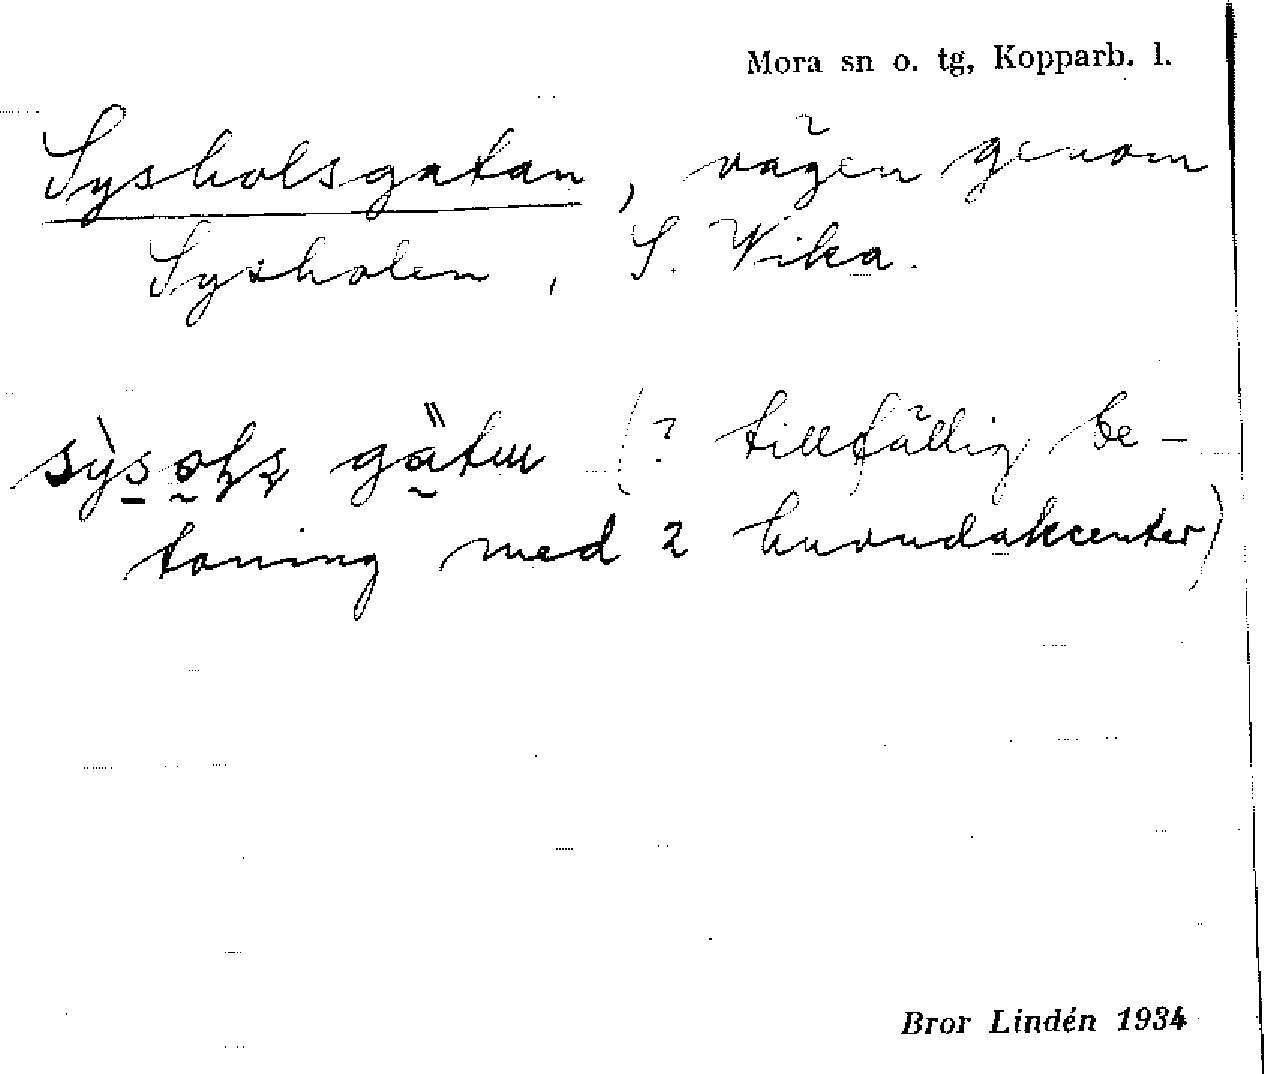 Mora sn o. tg, Kopparb. l.
Sysholsgatan, vägen genom
Sysholen, S. Vika.
gätɯ (? tillfällig be-
toning med 2 huvudakcenter)
Bror Lindén 1934